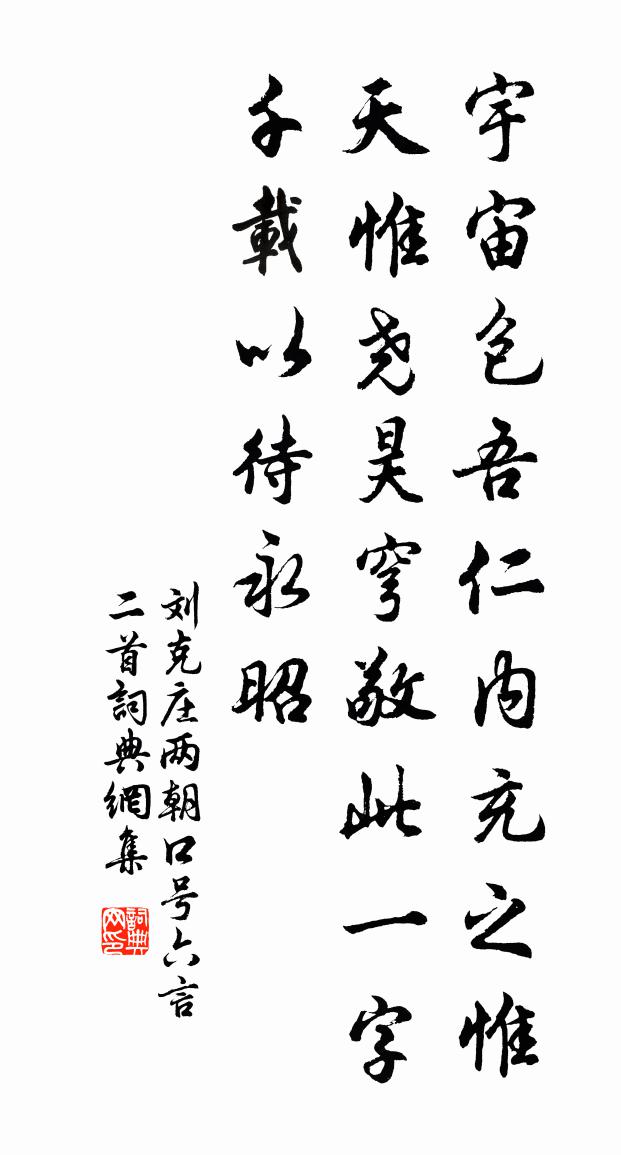 宇宙包吾仁内充之惟
天惟尧昊穹敬此一字
千載以待永昭
刘克庄两朝口号六言
二首詞典網集
詞典网印